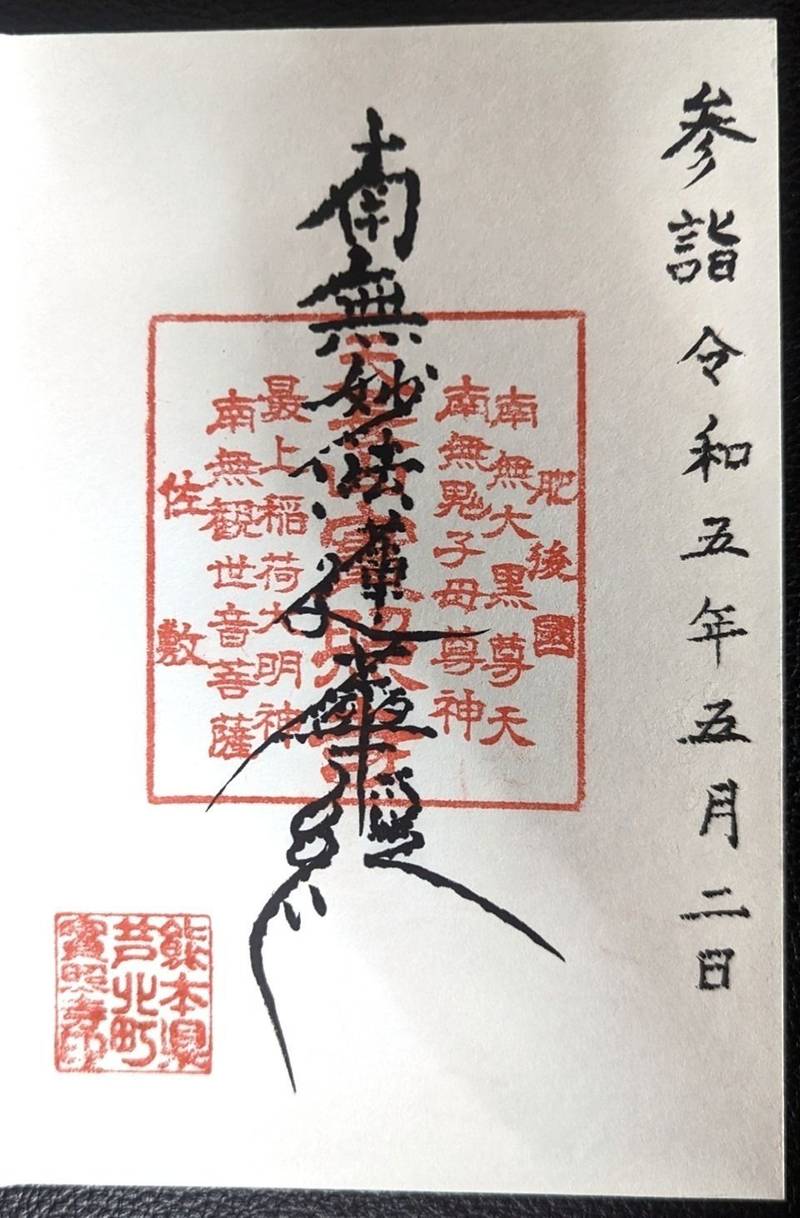 参詣 令和五年五月二日
南無妙法蓮華経
肥後國
南無大黒尊天
南無鬼子母尊神
最上稲荷大明神
南無観世音菩薩
佐敷
熊本県
芦北町